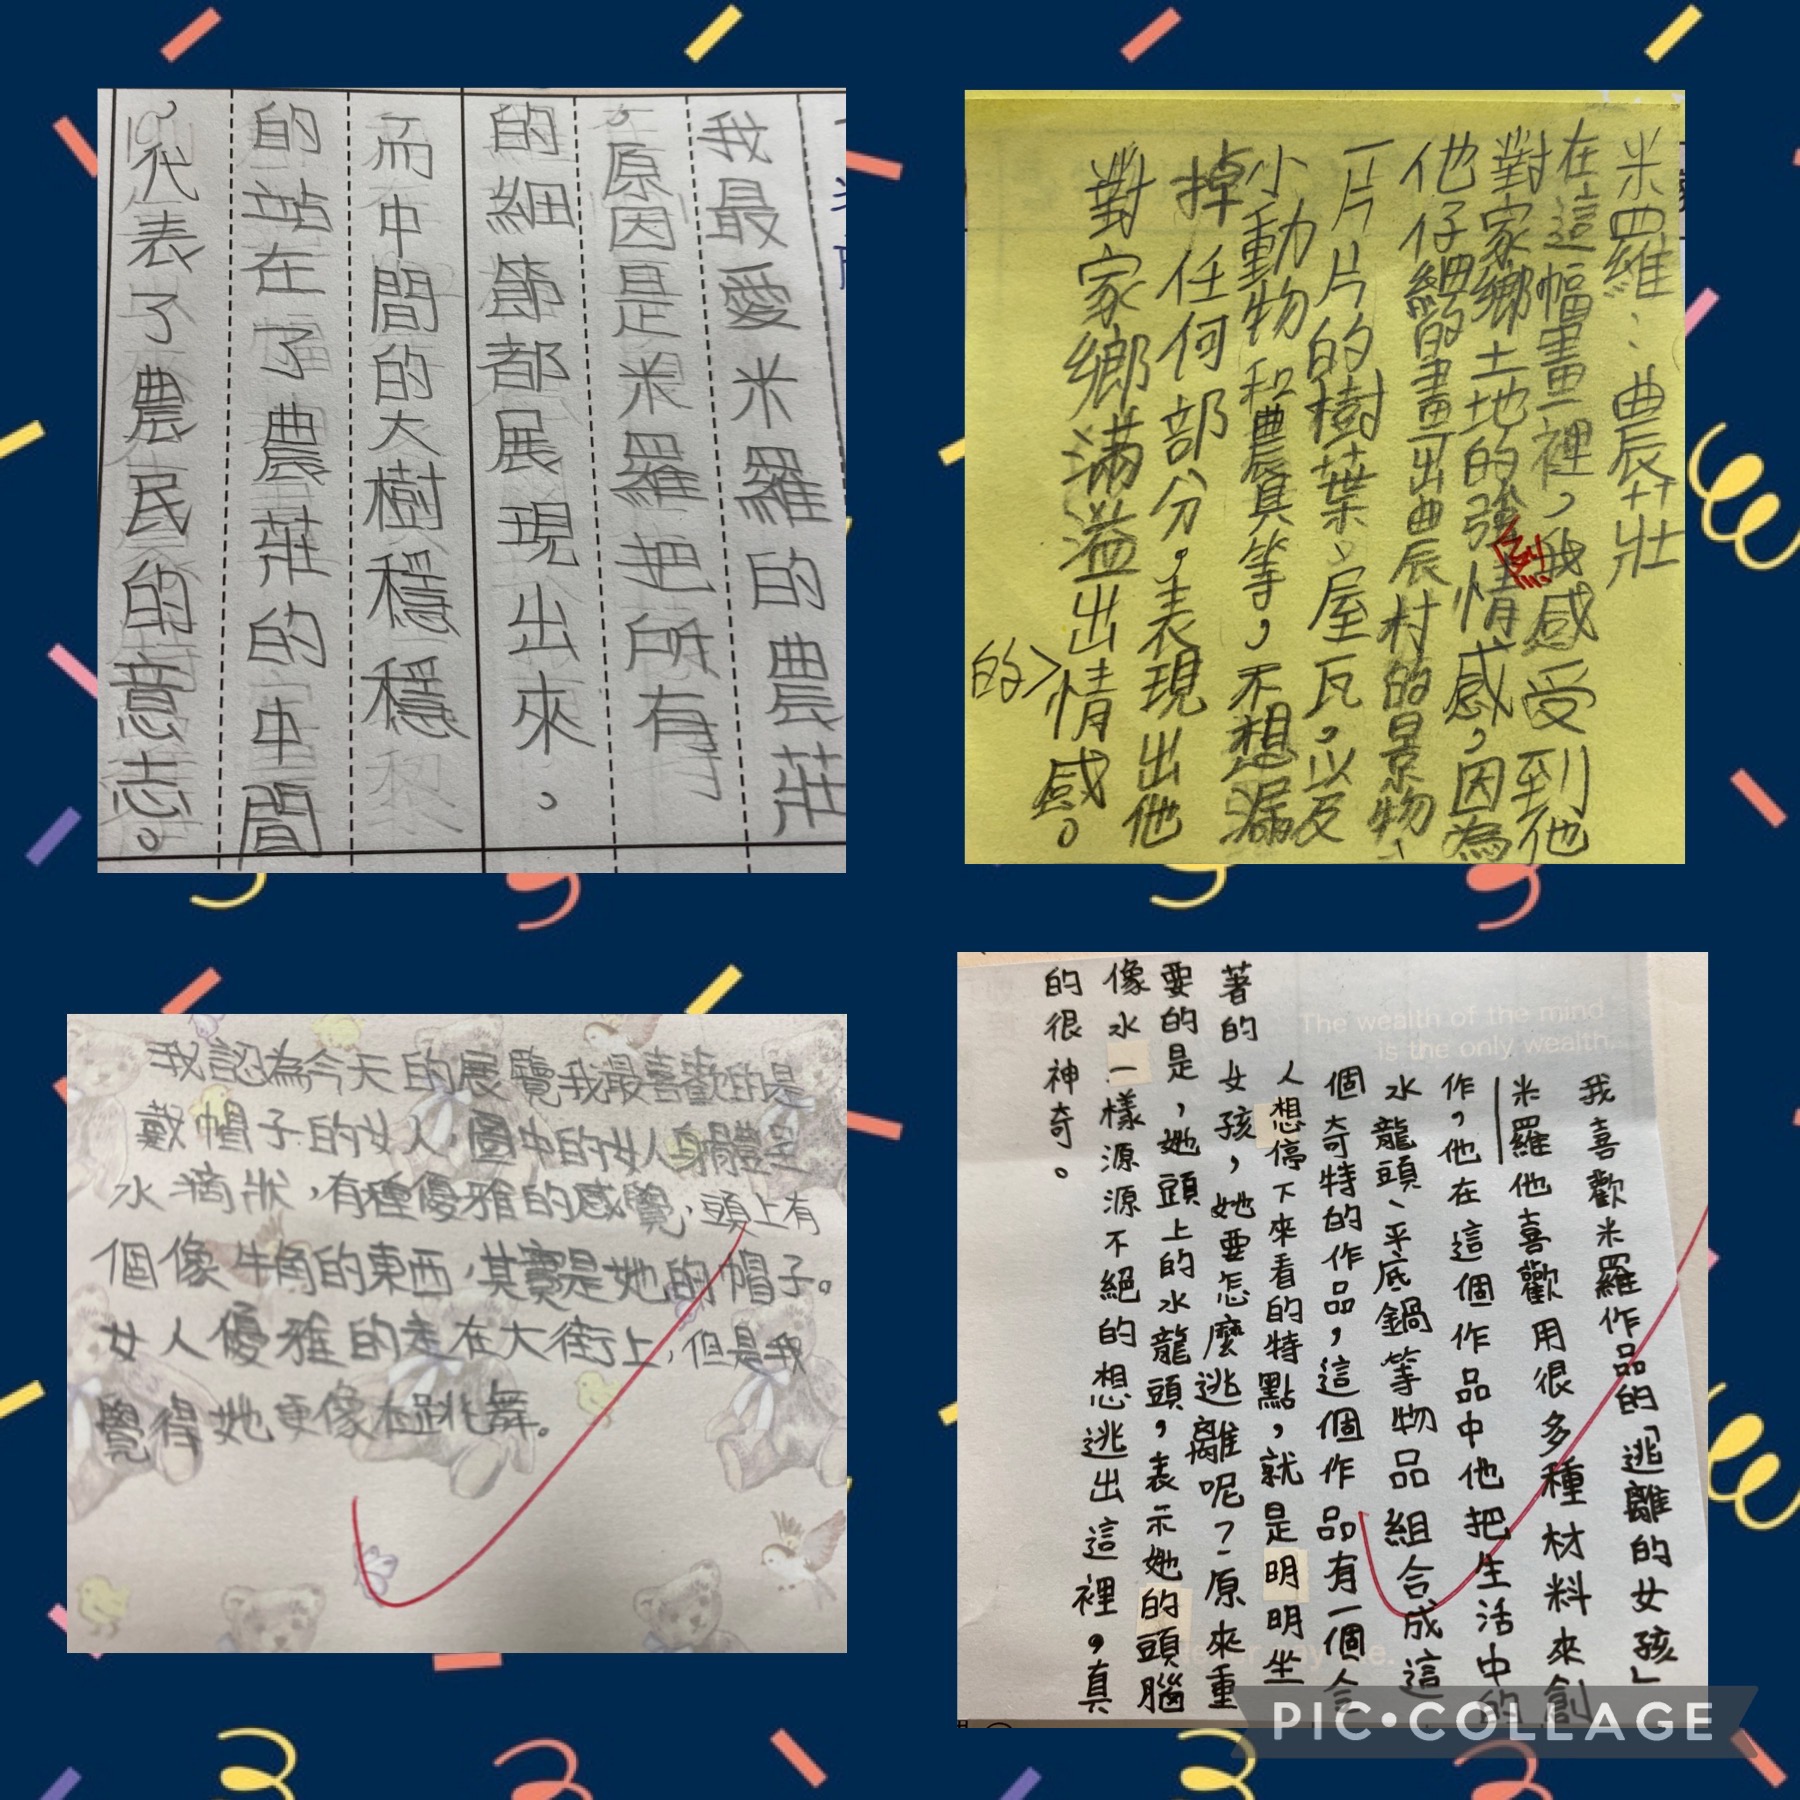 我最愛米羅的農莊
，原因是米羅把所有
的細節都展現出來。
而中間的大樹穩穩
的站在了農莊的中間
，代表了農民的意志。
米羅：農莊
在這幅畫裡，我感受到他
對家鄉土地的強烈情感，因為
他仔細的畫出農村的景物、
一片片的樹葉、屋瓦，以及
小動物和農具等，不想漏
掉任何部分。表現出他
對家鄉滿溢出的情感。
我認為今天的展覽我最喜歡的是
戴帽子的女人，圖中的女人身體呈
水滴狀，有種優雅的感覺，頭上有
個像牛角的東西，其實是她的帽子。
女人優雅的走在大街上，但是我
覺得她更像在跳舞。
The wealth of the mind
is the only wealth.
我喜歡米羅作品的「逃離的女孩」
米羅他喜歡用很多種材料來創
作，他在這個作品中他把生活中的
水龍頭、平底鍋等物品組合成這
個奇特的作品，這個作品有一個令
人想停下來看的特點，就是明明坐
著的女孩，她要怎麼逃離呢？原來重
要的是，她頭上的水龍頭，表示她的頭腦
像水一樣源源不絕的想逃出這裡，真
的很神奇。
PIC•COLLAGE